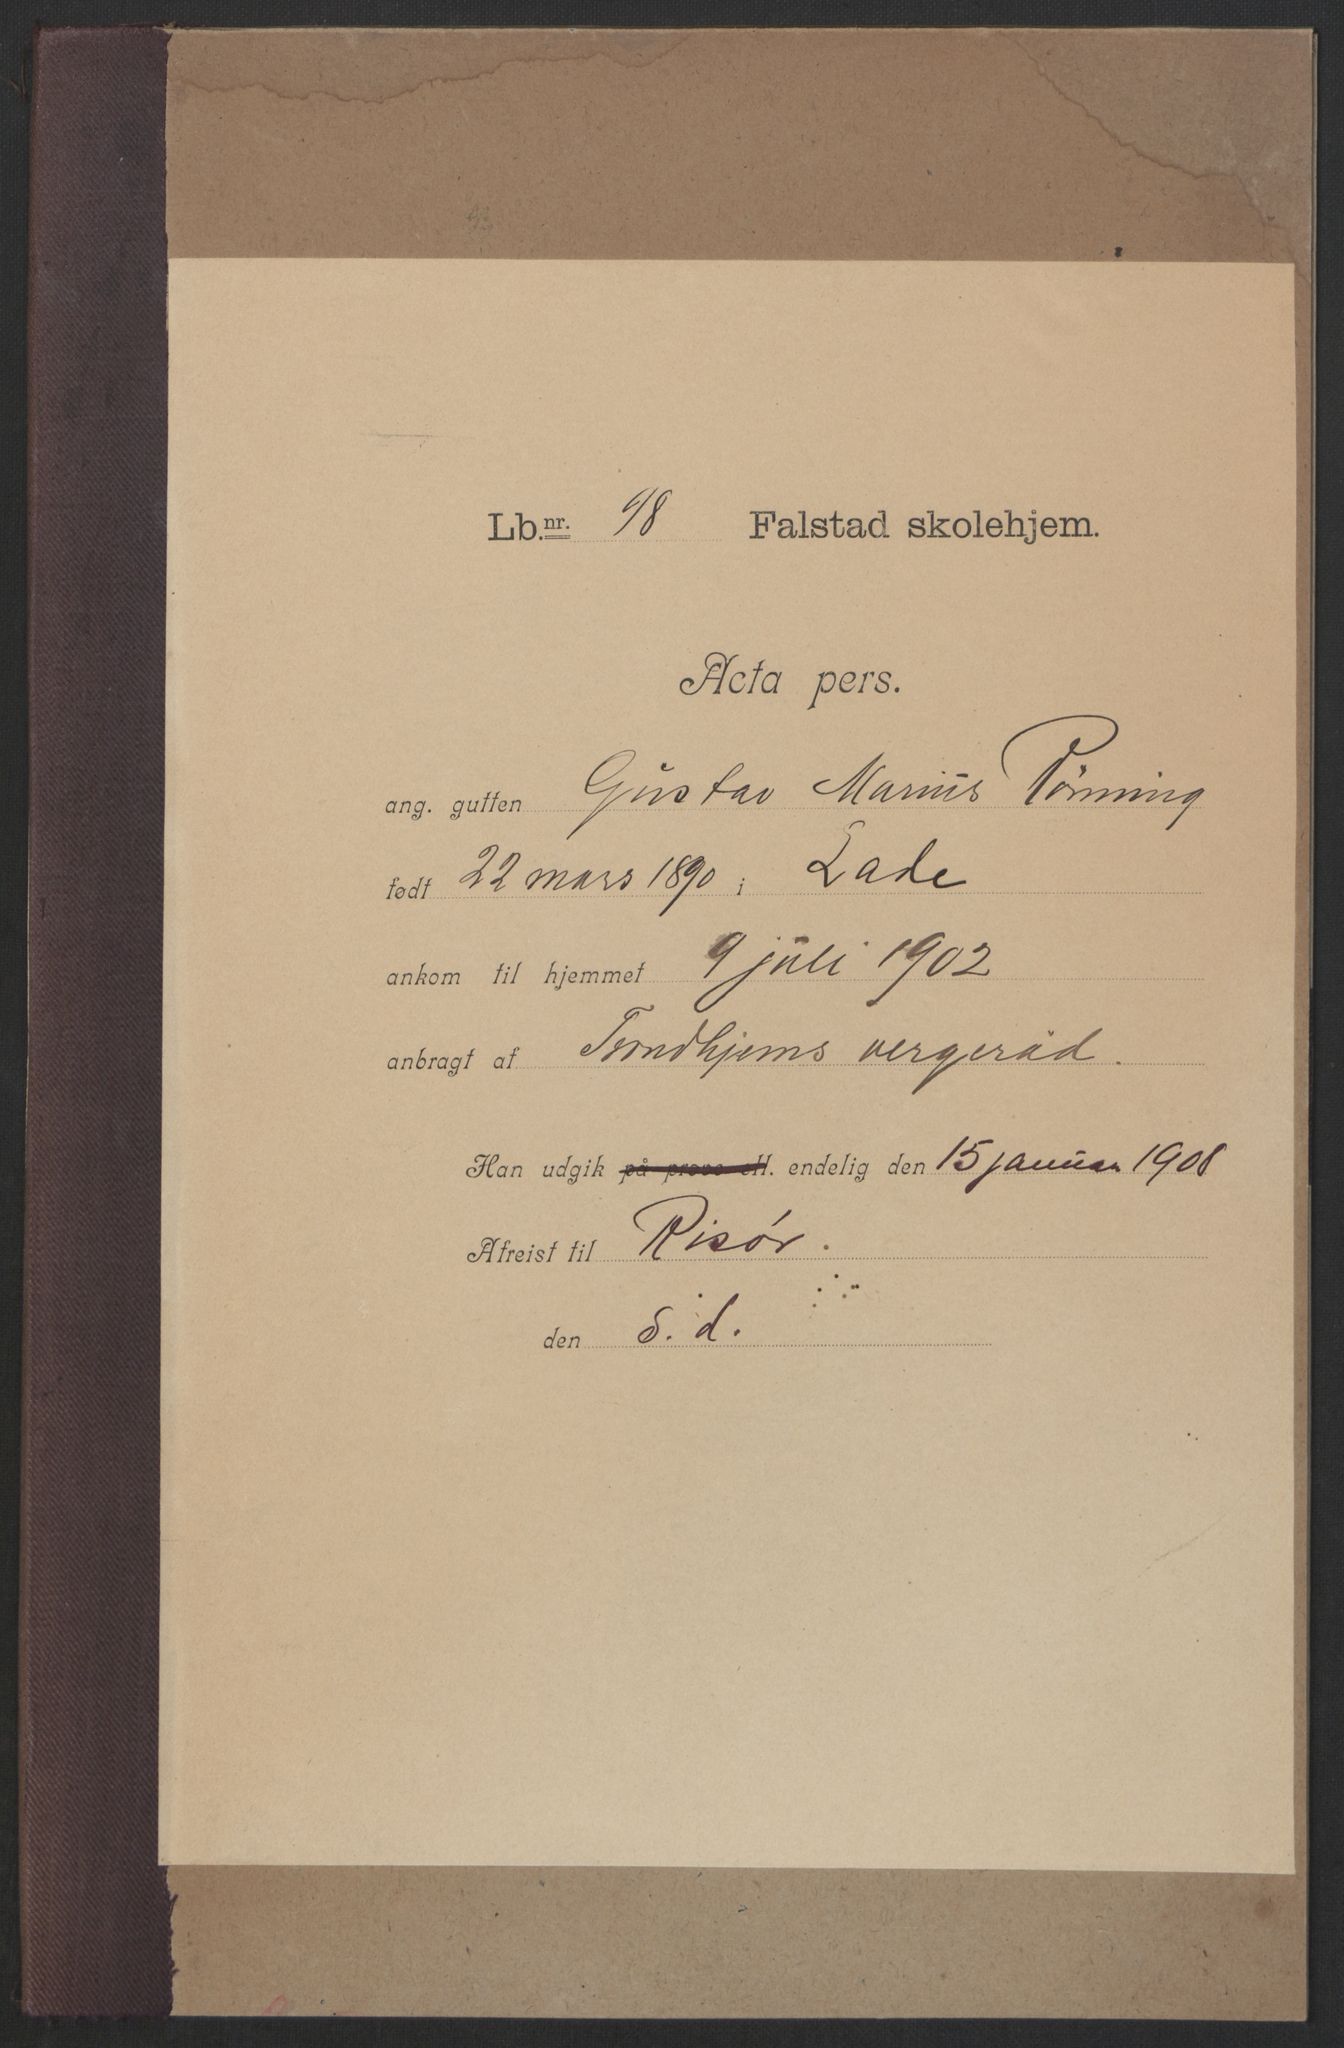 Lb.nr. 98 Falstad skolehjem.
Acta pers.
ang. gutten Gustav Marius Rönning
født 22 mars 1890 i Lade
ankom til hjemmet 9 juli 1902
anbragt af Trondhjems vergeråd.
Han udgik på prøve ell. endelig den 15 januar 1908
Afreist til Risör.
den s. d.